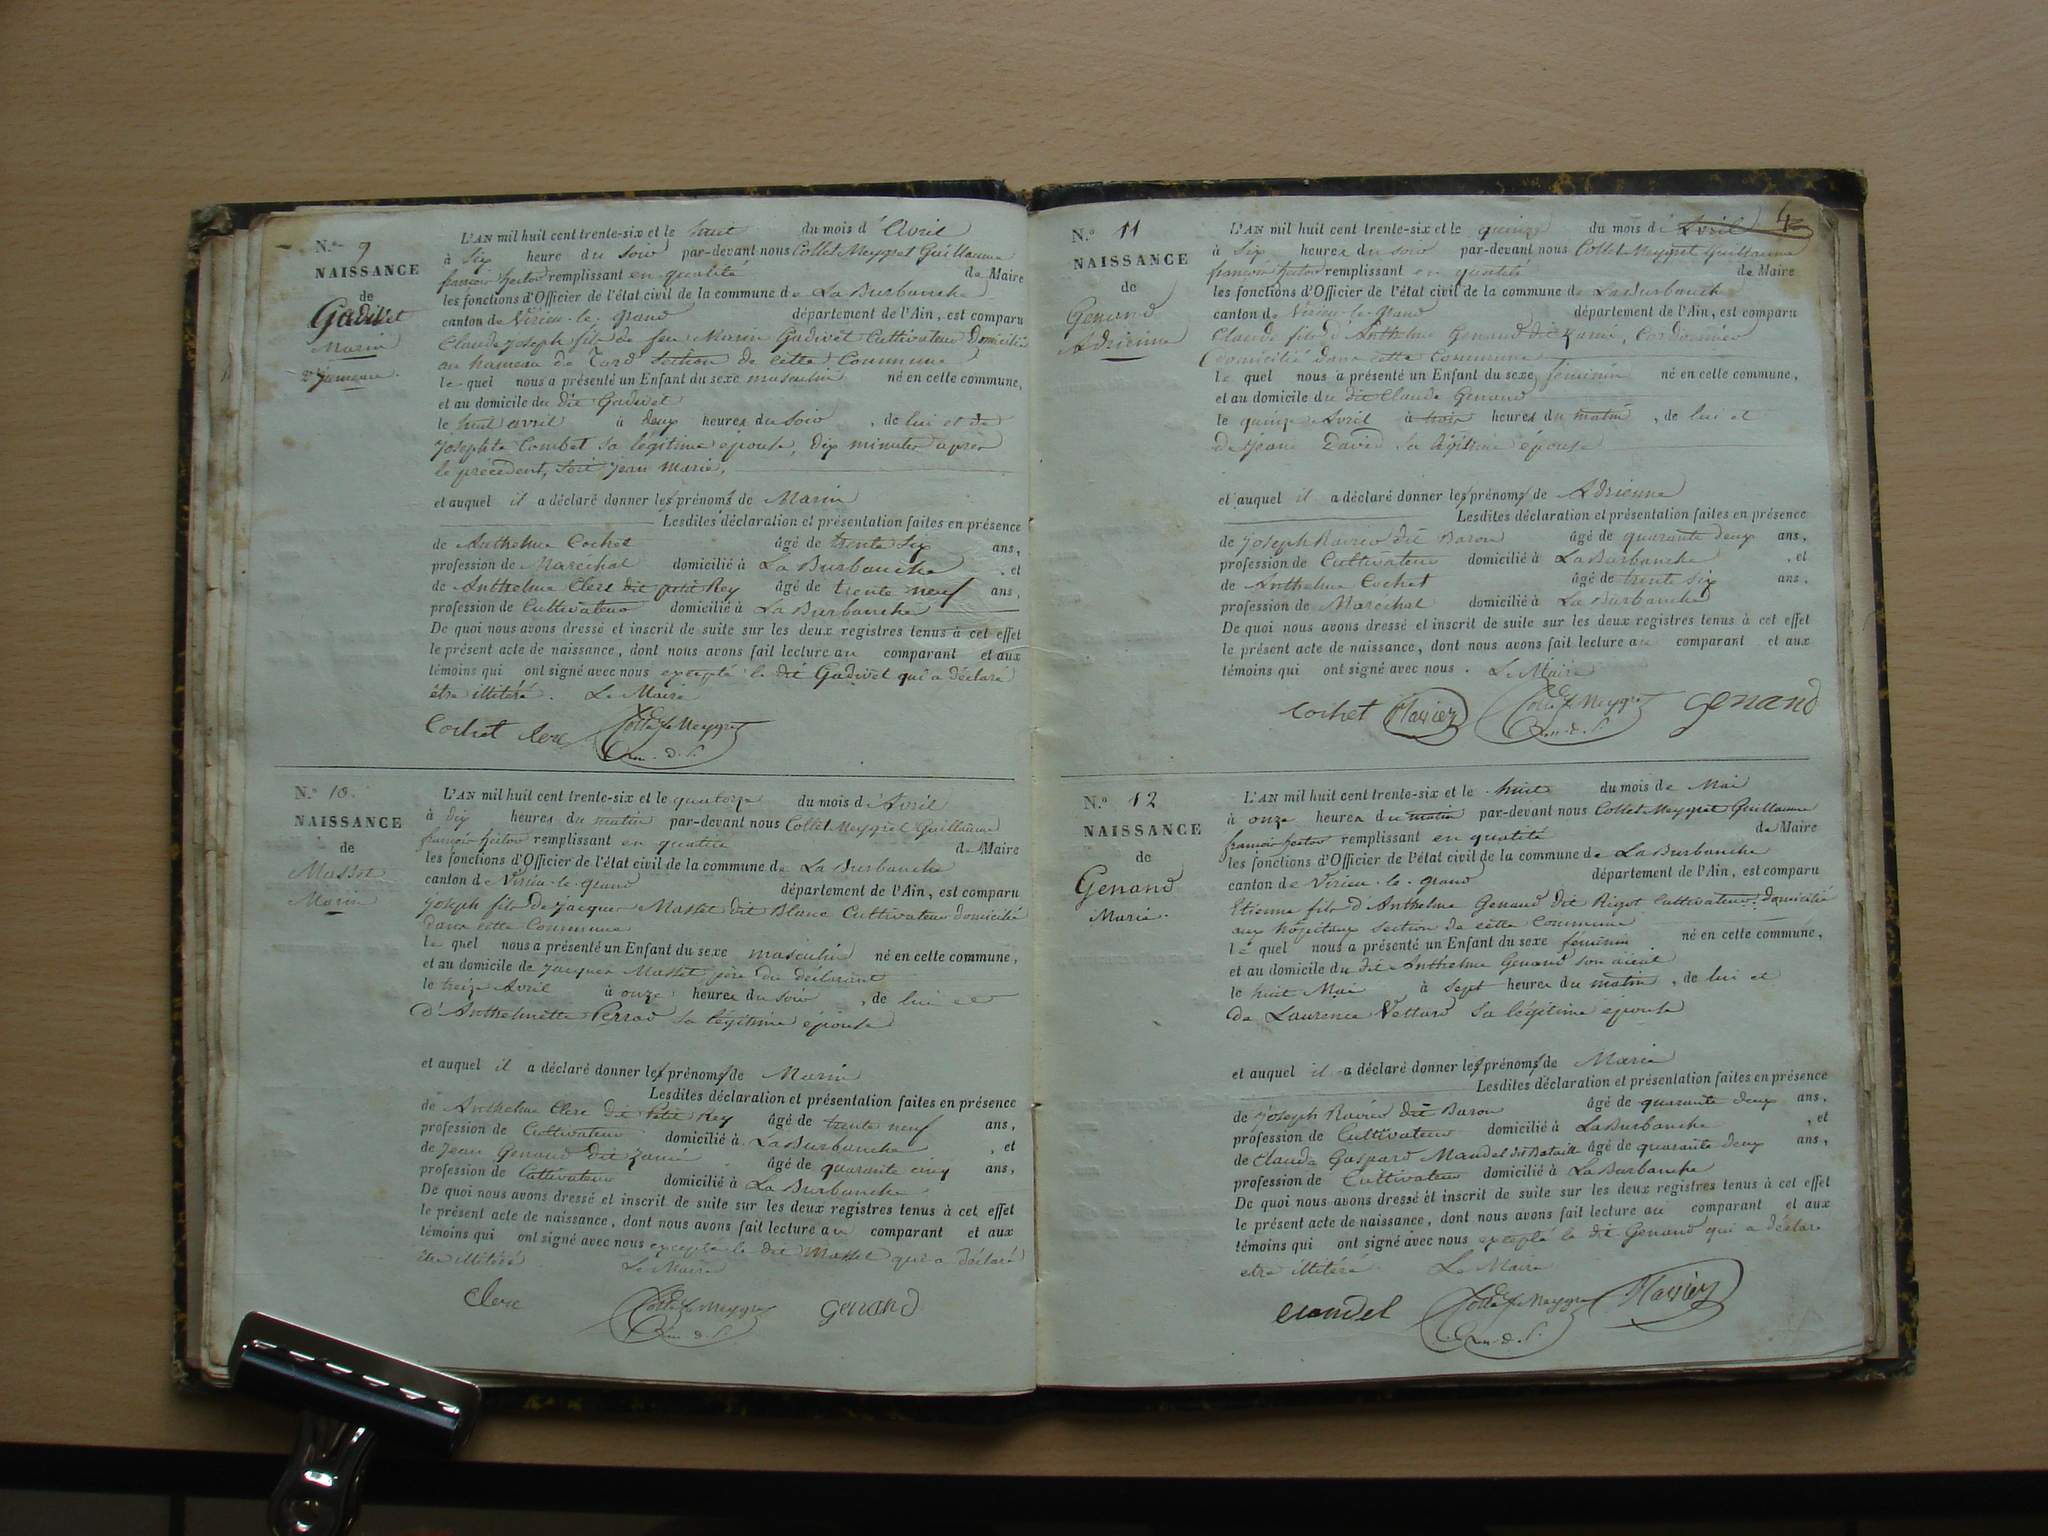 N.º 9
NAISSANCE
de
Gadivet
Marin
2e jumeau.
L'AN mil huit cent trente-six et le huit du mois d'Avril
à Six heure du soir par-devant nous Collet Meygret Guillaume
françois hector remplissant en qualité de Maire
les fonctions d'Officier de l'état civil de la commune de La Burbanche
canton de Virieu-le-grand département de l'Ain, est comparu
Claude joseph fils de feu Marin Gadivet Cultivateur Domicilié
au hameau de section de cette Commune
le quel nous a présenté un Enfant du sexe masculin né en cette commune,
et au domicile du dit Gadivet
le huit avril à deux heures du soir, de lui et de
Josephte Combet sa légitime épouse, dix minutes après
le précédent, soit jean Marie,
et auquel il a déclaré donner les prénoms de Marin
Lesdites déclaration et présentation faites en présence
de Anthelme Cochet âgé de trente six ans,
profession de Maréchal domicilié à La Burbanche, et
de Anthelme Clerc dit petit Rey âgé de trente neuf ans,
profession de Cultivateur domicilié à La Burbanche
De quoi nous avons dressé et inscrit de suite sur les deux registres tenus à cet effet
le présent acte de naissance, dont nous avons fait lecture au comparant et aux
témoins qui ont signé avec nous excepté le dit Gadivet qui a déclaré
être illitéré. Le Maire
Cochet clerc Collet Meygret
N.º 10.
NAISSANCE
de
Masset
Marin
L'AN mil huit cent trente-six et le quatorze du mois d'Avril
à dix heures du matin par-devant nous Collet Meygret Guillaume
françois hector remplissant en qualité de Maire
les fonctions d'Officier de l'état civil de la commune de La Burbanche
canton de Virieu-le-grand département de l'Ain, est comparu
joseph fils de jacques Masset dit Blanc Cultivateur domicilié
dans cette Commune
le quel nous a présenté un Enfant du sexe masculin né en cette commune,
et au domicile de jacques Masset père du déclarant
le treize Avril à onze heures du soir, de lui et
d'Anthelmette Perrad sa légitime épouse
et auquel il a déclaré donner les prénoms de Marin
Lesdites déclaration et présentation faites en présence
de Anthelme Clerc dit Petit Rey âgé de trente neuf ans,
profession de Cultivateur domicilié à La Burbanche, et
de Jean Genand dit âgé de quarante cinq ans,
profession de Cultivateur domicilié à La Burbanche
De quoi nous avons dressé et inscrit de suite sur les deux registres tenus à cet effet
le présent acte de naissance, dont nous avons fait lecture au comparant et aux
témoins qui ont signé avec nous excepté le dit Masset qui a déclaré
être illitéré Le Maire
clerc Collet Meygret genand
N.º 11
NAISSANCE
de
Genand
Adrienne
L'AN mil huit cent trente-six et le quinze du mois d'Avril
à Six heures du soir par-devant nous Collet Meygret Guillaume
françois hector remplissant en qualité de Maire
les fonctions d'Officier de l'état civil de la commune de La Burbanche
canton de Virieu-le-grand département de l'Ain, est comparu
Claude fils d'Anthelme Genand dit Cordonnier
domicilié dans cette Commune
le quel nous a présenté un Enfant du sexe féminin né en cette commune,
et au domicile du dit Claude Genand
le quinze Avril à trois heures du matin, de lui et
de jeane David sa légitime épouse
et auquel il a déclaré donner les prénoms de Adrienne
Lesdites déclaration et présentation faites en présence
de joseph Ravier dit Baron âgé de quarante deux ans,
profession de Cultivateur domicilié à La Burbanche, et
de Anthelme Cochet âgé de trente six ans,
profession de Maréchal domicilié à La Burbanche
De quoi nous avons dressé et inscrit de suite sur les deux registres tenus à cet effet
le présent acte de naissance, dont nous avons fait lecture au comparant et aux
témoins qui ont signé avec nous. Le Maire
cochet Ravier Collet Meygret genand
N.º 12
NAISSANCE
de
Genand
Marie.
L'AN mil huit cent trente-six et le huit du mois de Mai
à onze heures du matin par-devant nous Collet Meygret Guillaume
françois hector remplissant en qualité de Maire
les fonctions d'Officier de l'état civil de la commune de La Burbanche
canton de Virieu-le-grand département de l'Ain, est comparu
Etienne fils d'Anthelme Genand dit Rigot Cultivateur domicilié
aux hôpitaux section de cette Commune
le quel nous a présenté un Enfant du sexe féminin né en cette commune,
et au domicile du dit Anthelme Genand son aïeul
le huit Mai à sept heures du matin, de lui et
de Laurence Vettard sa légitime épouse
et auquel il a déclaré donner les prénoms de Marie
Lesdites déclaration et présentation faites en présence
de Joseph Ravier dit Baron âgé de quarante deux ans,
profession de Cultivateur domicilié à La Burbanche, et
de Claude Gaspard Mandel dit Bataille âgé de quarante deux ans,
profession de Cultivateur domicilié à La Burbanche
De quoi nous avons dressé et inscrit de suite sur les deux registres tenus à cet effet
le présent acte de naissance, dont nous avons fait lecture au comparant et aux
témoins qui ont signé avec nous excepté le dit Genand qui a déclaré
etre illitéré Le Maire
mandel Collet Meygret Ravier